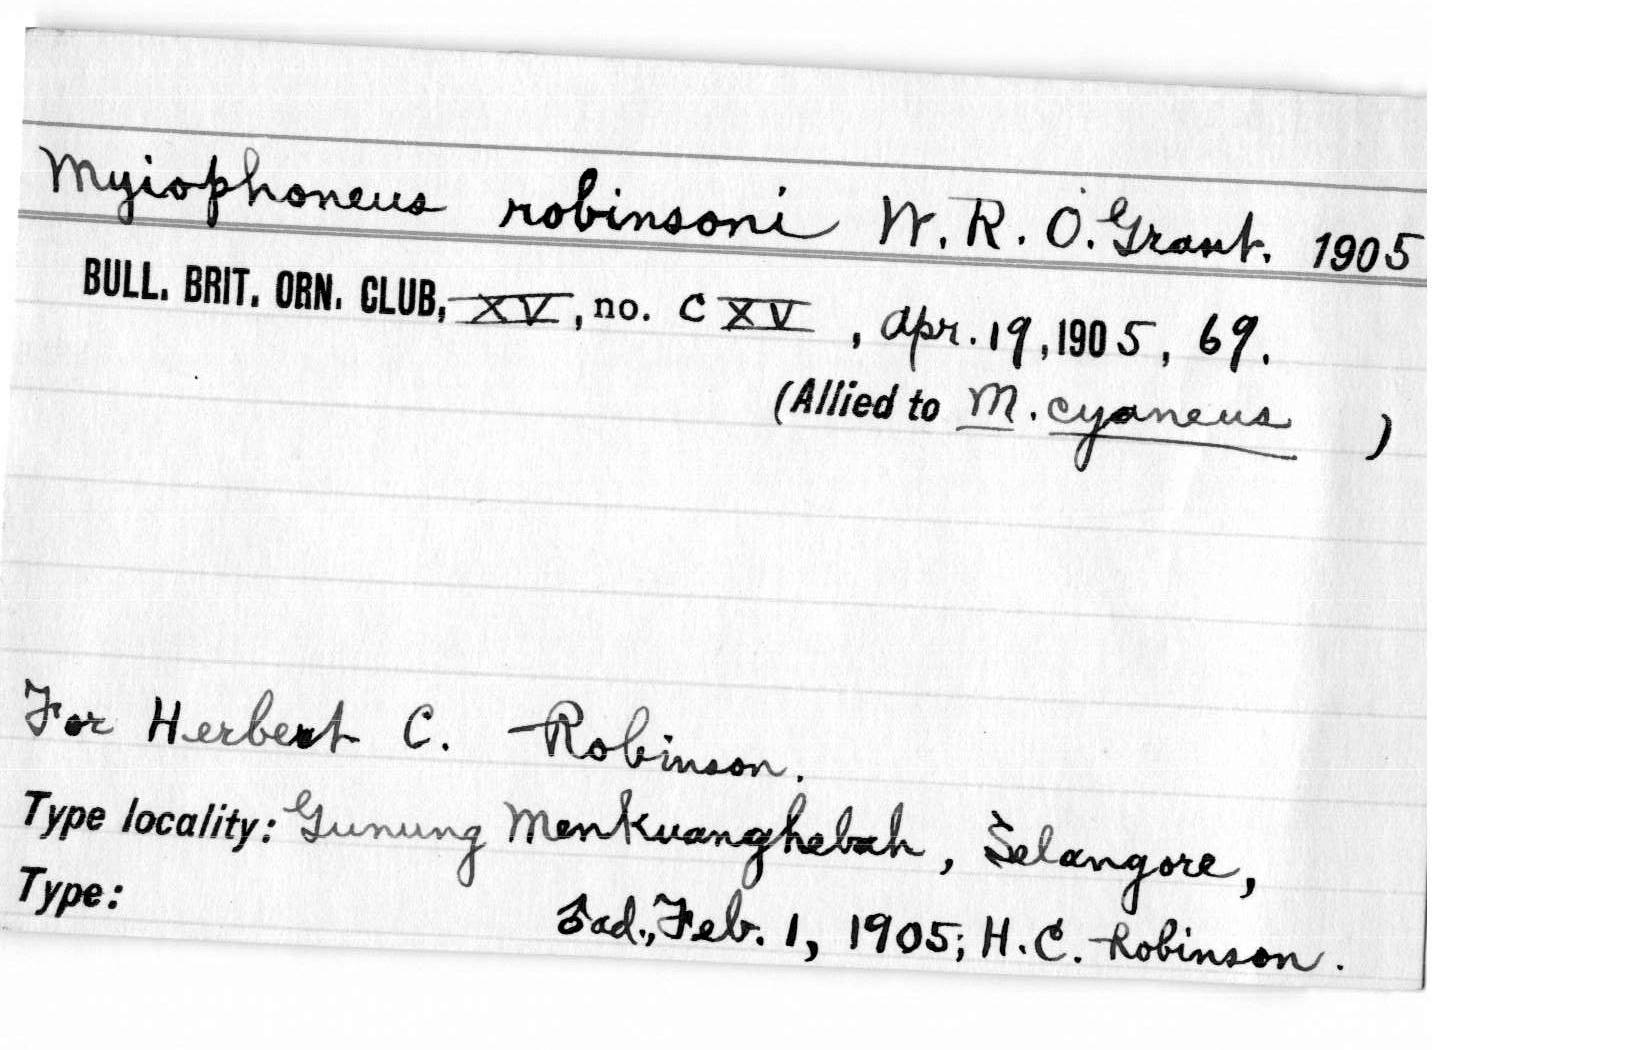 Myiophoneus robinsoni W. R. O. Grant. 1905
BULL. BRIT. ORN. CLUB, XV, no. CXV, Apr. 19, 1905, 69.
(Allied to M. cyaneus )
For Herbert C. Robinson.
Type locality: Gunung Menkuanghebah, Selangore,
Type: ♂ ad., Feb. 1, 1905; H. C. Robinson.